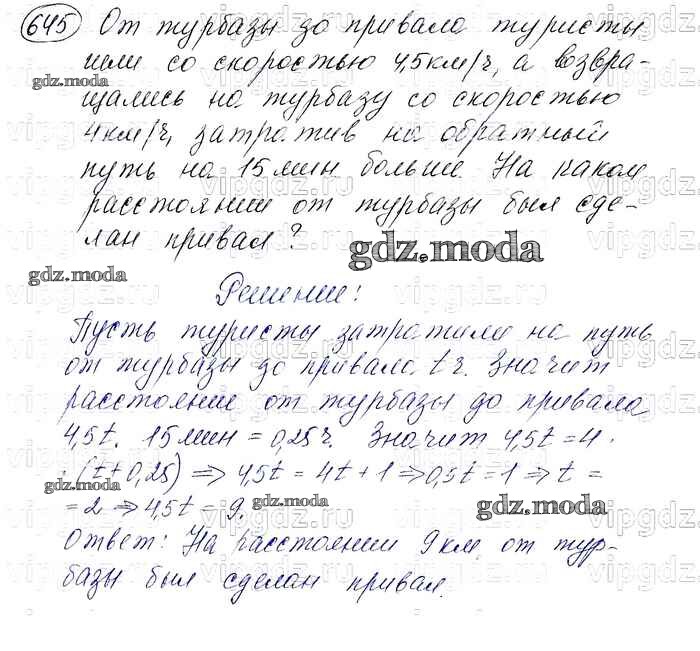 645 От турбазы до привала туристы
шли со скоростью 4,5 км/ч, а возвра-
щались на турбазу со скоростью
4 км/ч, затратив на обратный
путь на 15 мин больше. На каком
расстоянии от турбазы был сде-
лан привал?
gdz.moda
gdz.moda
gdz.moda
Решение:
Пусть туристы затратили на путь
от турбазы до привала t ч. Значит
расстояние от турбазы до привала
4,5t. 15 мин = 0,25 ч. Значит 4,5t = 4 ·
· (t + 0,25) ⇒ 4,5t = 4t + 1 ⇒ 0,5t = 1 ⇒ t =
= 2 ⇒ 4,5t = 9.
gdz.moda
gdz.moda
gdz.moda
Ответ: На расстоянии 9 км от тур-
базы был сделан привал.
vipgdz.ru